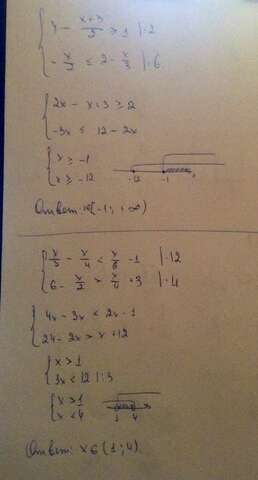 { x - (x+3)/2 ≥ 1 |·2
{ -x/2 ≤ 2 - x/3 |·6
{ 2x - x+3 ≥ 2
{ -3x ≤ 12 - 2x
{ x ≥ -1
{ x ≥ -12
-12 -1 x
Ответ: [-1; +∞)
{ x/3 - x/4 < x/6 - 1 |·12
{ 6 - x/2 > x/4 + 3 |·4
{ 4x - 3x < 2x - 1
{ 24 - 2x > x + 12
{ x > 1
{ 3x < 12 |:3
{ x > 1
{ x < 4
1 4 x
Ответ: x ∈ (1; 4).